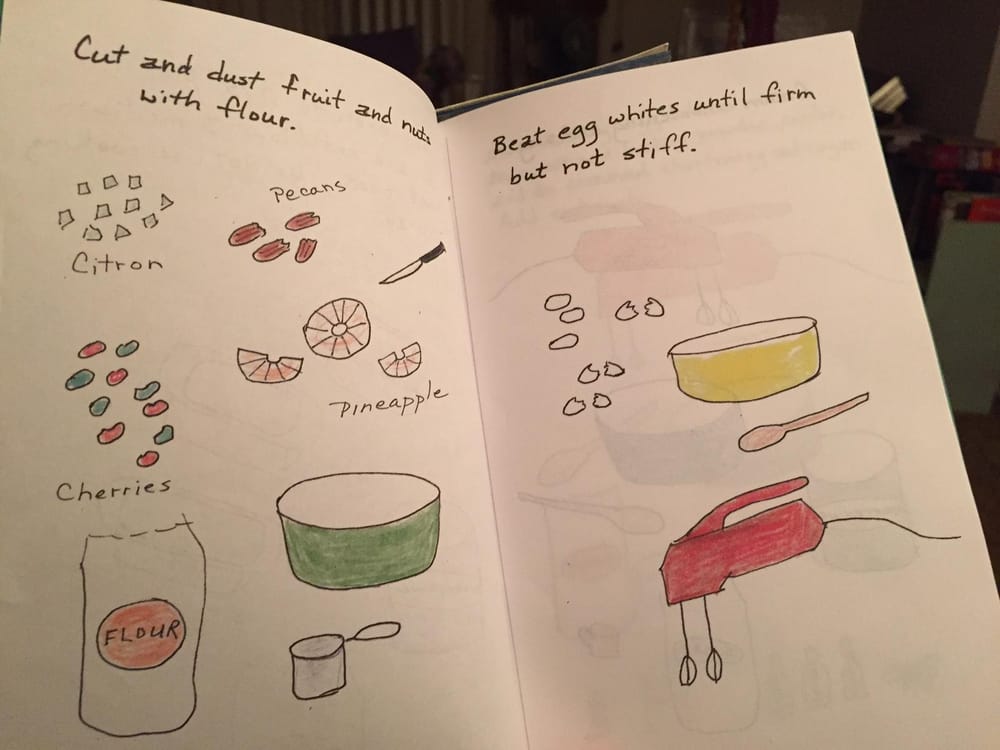 Cut and dust fruit and nuts
with flour.
Pecans
Citron
Pineapple
Cherries
FLOUR
Beat egg whites until firm
but not stiff.